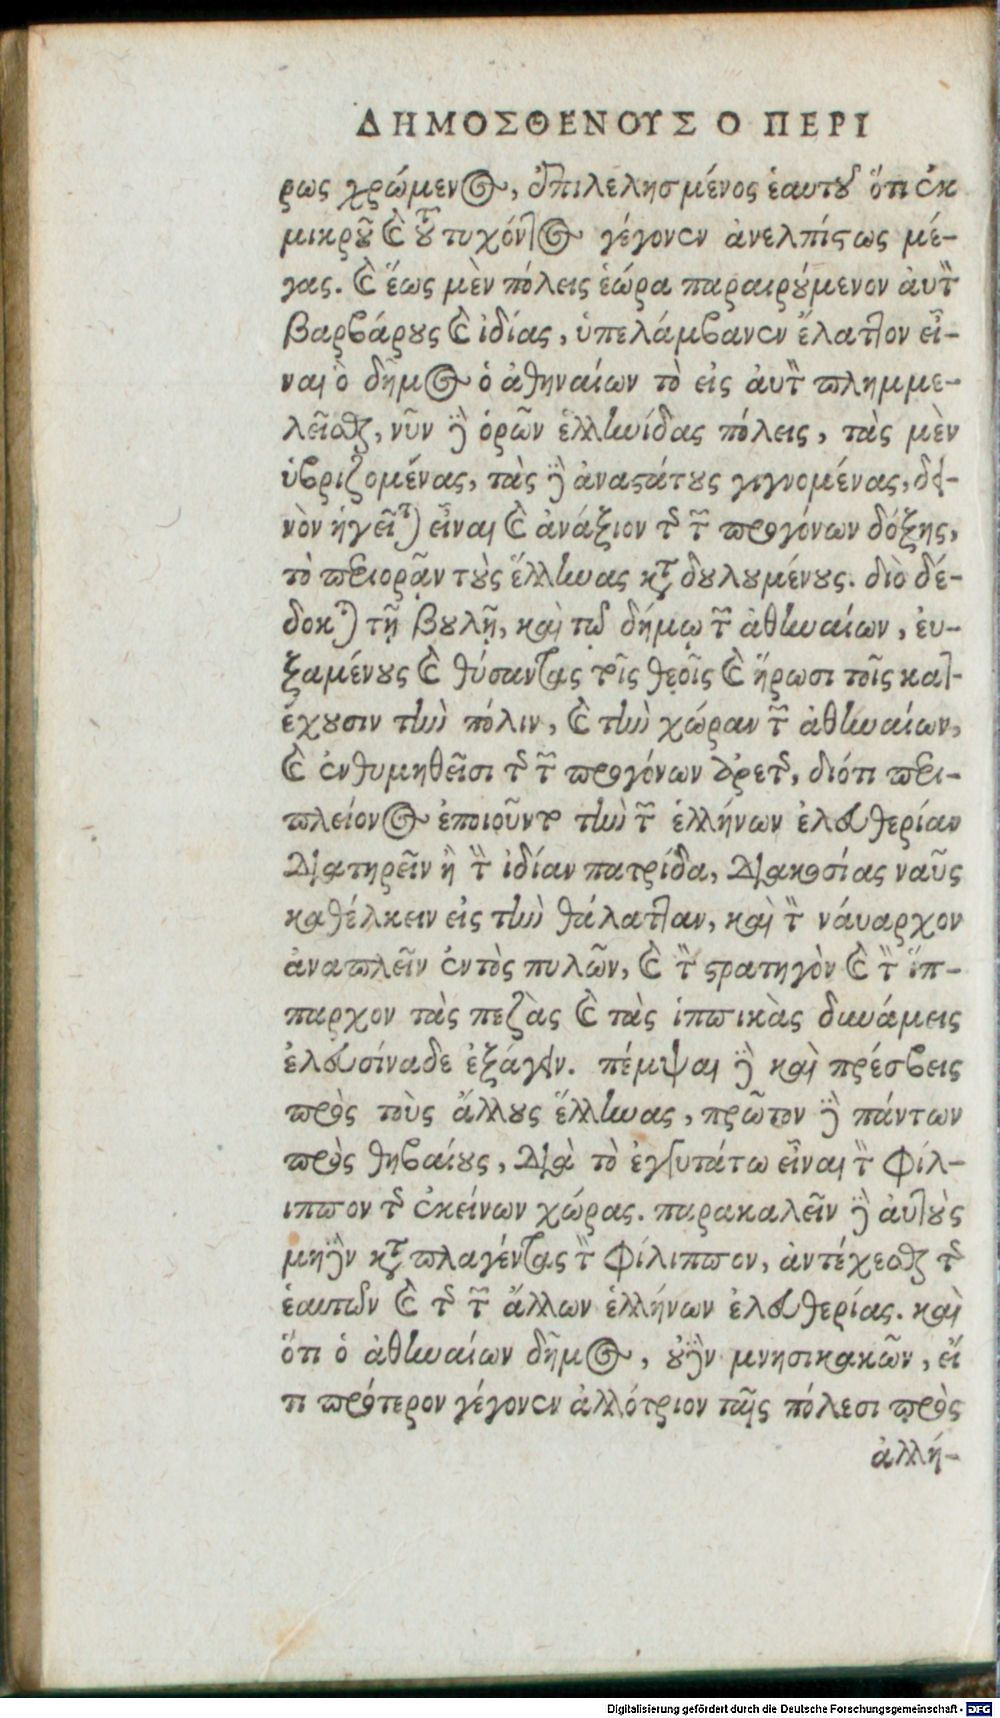 ΔΗΜΟΣΘΕΝΟΥΣ Ο ΠΕΡΙ
ρως χρώμενος, ἐπιλελησμένος ἑαυτοῦ ὅτι ἐκ
μικροῦ καὶ τοῦ τυχόντος γέγονεν ἀνελπίστως μέ-
γας. καὶ ἕως μὲν πόλεις ἑώρα παραιρούμενον αὐτὸν
βαρβάρους καὶ ἰδίας, ὑπελάμβανεν ἔλαττον εἶ-
ναι ὁ δῆμος ὁ ἀθηναίων τὸ εἰς αὐτὸν πλημμε-
λεῖσθαι, νῦν δὲ ὁρῶν ἑλληνίδας πόλεις, τὰς μὲν
ὑβριζομένας, τὰς δὲ ἀναστάτους γιγνομένας, δει-
νὸν ἡγεῖται εἶναι καὶ ἀνάξιον τῆς τῶν προγόνων δόξης,
τὸ περιορᾶν τοὺς ἕλληνας καταδουλουμένους. διὸ δέ-
δοκται τῇ βουλῇ, καὶ τῷ δήμῳ τῶν ἀθηναίων, εὐ-
ξαμένους καὶ θύσαντας τοῖς θεοῖς καὶ ἥρωσι τοῖς κατ-
έχουσιν τὴν πόλιν, καὶ τὴν χώραν τῶν ἀθηναίων,
καὶ ἐνθυμηθεῖσι τῆς τῶν προγόνων ἀρετῆς, διότι περὶ
πλείονος ἐποιοῦντο τὴν τῶν ἑλλήνων ἐλευθερίαν
διατηρεῖν ἢ τὴν ἰδίαν πατρίδα, διακοσίας ναῦς
καθέλκειν εἰς τὴν θάλατταν, καὶ τὸν ναύαρχον
ἀναπλεῖν ἐντὸς πυλῶν, καὶ τὸν στρατηγὸν καὶ τὸν ἵπ-
παρχον τὰς πεζὰς καὶ τὰς ἱππικὰς δυνάμεις
ἐλευσίναδε ἐξάγειν. πέμψαι δὲ καὶ πρέσβεις
πρὸς τοὺς ἄλλους ἕλληνας, πρῶτον δὲ πάντων
πρὸς θηβαίους, διὰ τὸ ἐγγυτάτω εἶναι τὸν Φίλ-
ιππον τῆς ἐκείνων χώρας. παρακαλεῖν δὲ αὐτοὺς
μηδὲν καταπλαγέντας τὸν Φίλιππον, ἀντέχεσθαι τῆς
ἑαυτῶν καὶ τῆς τῶν ἄλλων ἑλλήνων ἐλευθερίας. καὶ
ὅτι ὁ ἀθηναίων δῆμος, οὐδὲν μνησικακῶν, εἴ
τι πρότερον γέγονεν ἀλλότριον ταῖς πόλεσι πρὸς
ἀλλή-
Digitalisierung gefördert durch die Deutsche Forschungsgemeinschaft - DFG